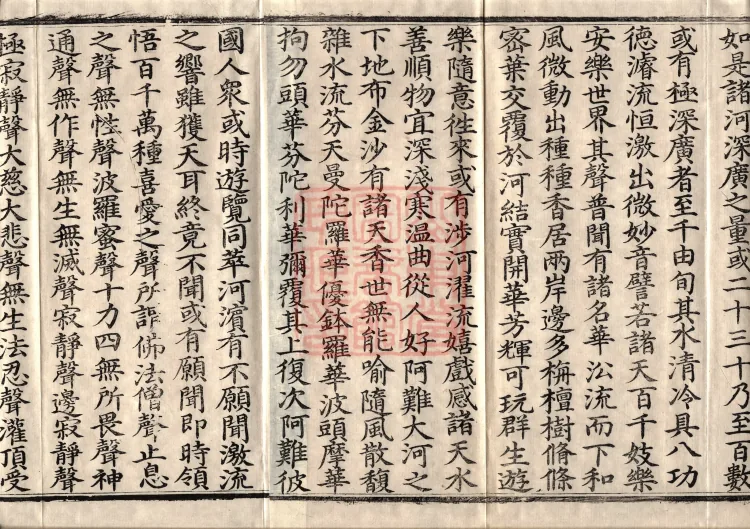 如是諸河深廣之量或二十三十乃至百數
或有極深廣者至千由旬其水清冷具八功
德濬流恒激出微妙音譬若諸天百千妓樂
安樂世界其聲普聞有諸名華㳂流而下和
風微動出種種香居兩岸邊多栴檀樹脩條
密葉交覆於河結實開華芳輝可玩群生遊
樂隨意徃來或有涉河濯流嬉戲感諸天水
善順物宜深淺寒温曲從人好阿難大河之
下地布金沙有諸天香世無能喻隨風散馥
雜水流芬天曼陀羅華優鉢羅華波頭摩華
拘勿頭華芬陀利華彌覆其上復次阿難彼
國人衆或時遊覽同萃河濱有不願聞激流
之響雖獲天耳終竟不聞或有願聞即時領
悟百千萬種喜愛之聲所謂佛法僧聲止息
之聲無性聲波羅蜜聲十力四無所畏聲神
通聲無作聲無生無滅聲寂靜聲邊寂靜聲
極寂靜聲大慈大悲聲無生法忍聲灌頂受